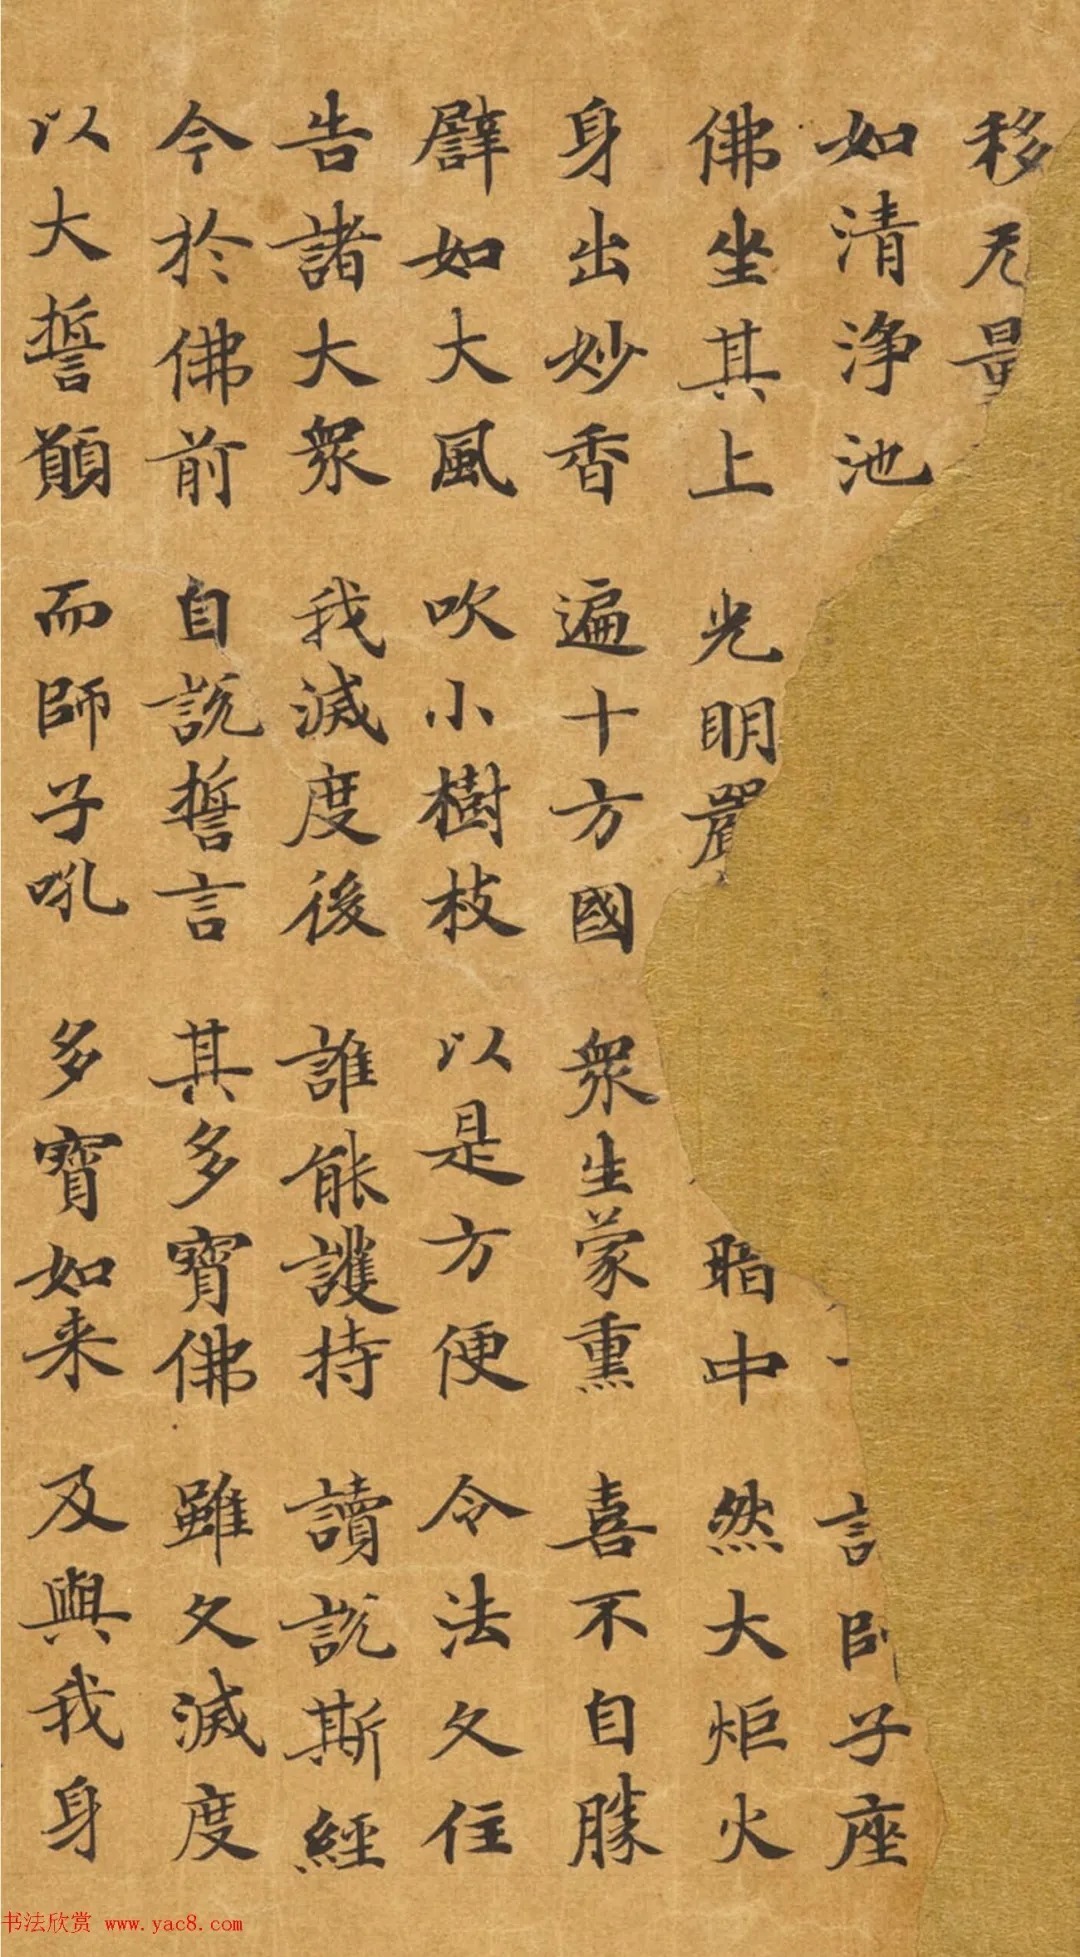 移无量
如清淨池 言師子座
佛坐其上 光明嚴 暗中 然大炬火
身出妙香 遍十方國 眾生蒙熏 喜不自勝
譬如大風 吹小樹枝 以是方便 令法久住
告諸大眾 我滅度後 誰能護持 讀説斯經
今於佛前 自説誓言 其多寶佛 雖久滅度
以大誓願 而師子吼 多寶如来 及與我身
书法欣赏 www.yac8.com